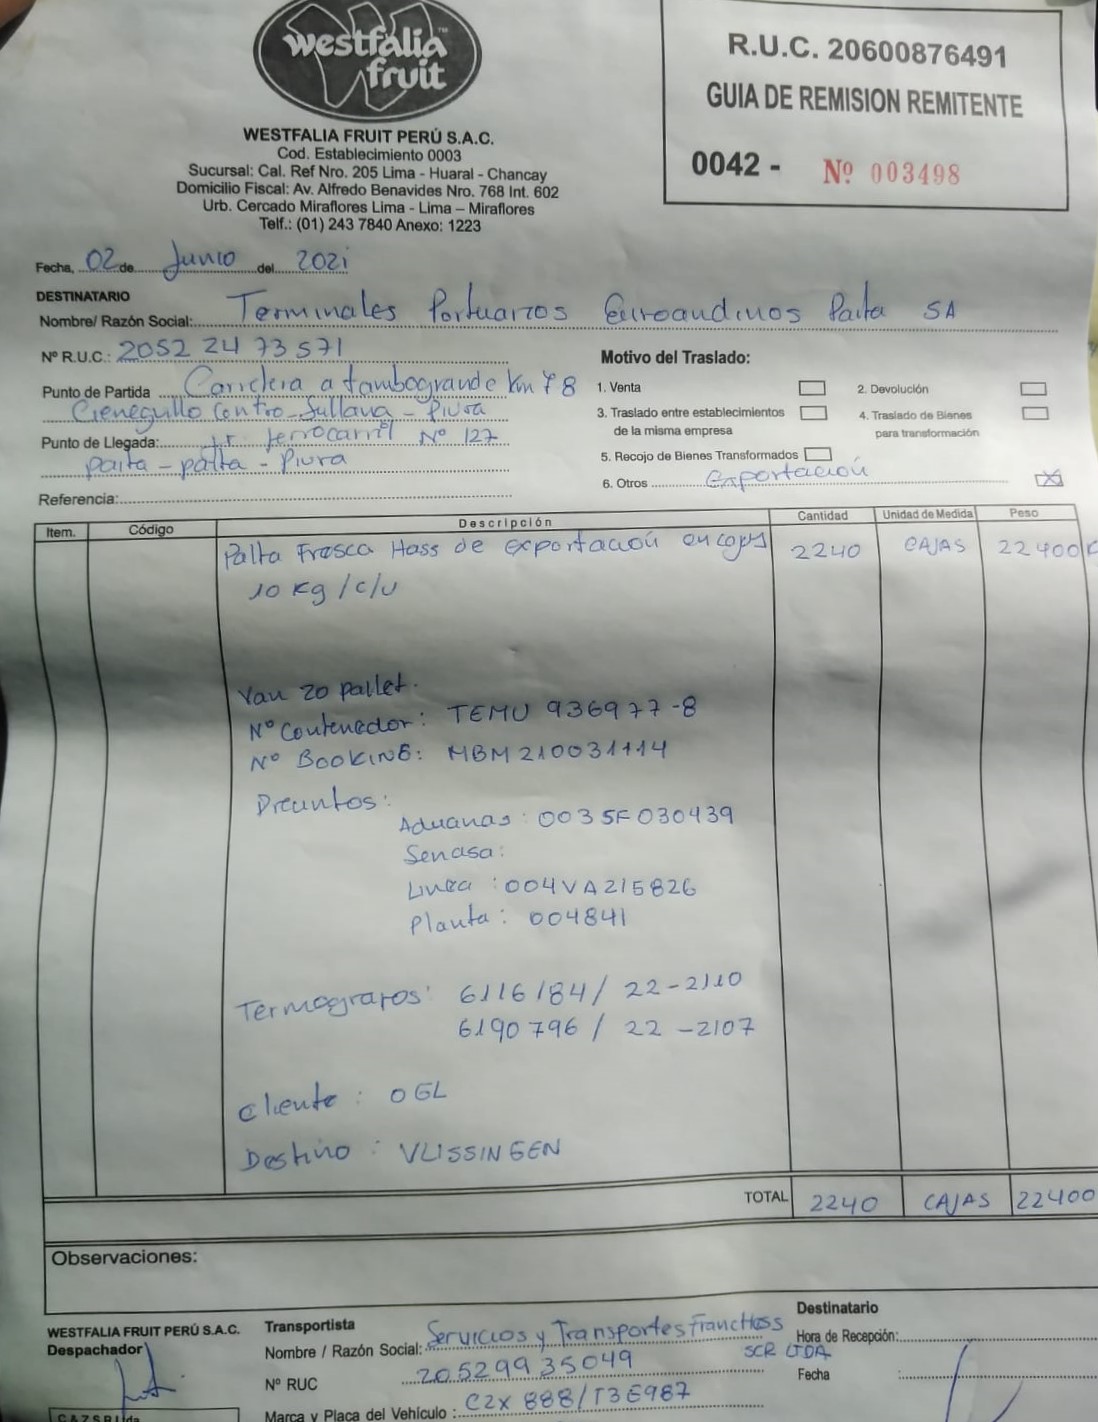 westfalia™
fruit
WESTFALIA FRUIT PERÚ S.A.C.
Cod. Establecimiento 0003
Sucursal: Cal. Ref Nro. 205 Lima - Huaral - Chancay
Domicilio Fiscal: Av. Alfredo Benavides Nro. 768 Int. 602
Urb. Cercado Miraflores Lima - Lima – Miraflores
Telf.: (01) 243 7840 Anexo: 1223
R.U.C. 20600876491
GUIA DE REMISION REMITENTE
0042 - Nº 003498
Fecha, 02 de Junio del 2021
DESTINATARIO
Nombre/ Razón Social: Terminales Portuarios Euroandinos Paita SA
Nº R.U.C.: 2052 24 73 571
Punto de Partida Carretera a tambogrande Km 78
Cieneguillo Centro - Sullana - Piura
Punto de Llegada: Jr. ferrocarril Nº 127
paita - paita - Piura
Referencia:
Motivo del Traslado:
1. Venta
2. Devolución
3. Traslado entre establecimientos
de la misma empresa
4. Traslado de Bienes
para transformación
5. Recojo de Bienes Transformados
6. Otros Exportación X
Item. Código Descripción Cantidad Unidad de Medida Peso
Palta Fresca Hass de exportación en cajas 2240 CAJAS 22400
10 Kg / c/u
Van 20 pallet.
Nº Contenedor: TEMU 936977-8
Nº BOOKING: MBM210031114
Precintos:
Aduanas: 0035F030439
Senasa:
Linea: 004VA215826
Planta: 004841
Termografos: 6116184/ 22-2110
6190796 / 22-2107
Cliente: OGL
Destino: VLISSINGEN
TOTAL 2240 CAJAS 22400
Observaciones:
WESTFALIA FRUIT PERÚ S.A.C.
Despachador
Transportista
Nombre / Razón Social: Servicios y Transportes Franchess
SCR LTDA
Nº RUC 20529935049
Marca y Placa del Vehículo: C2X 888/T3E987
Destinatario
Hora de Recepción:
Fecha